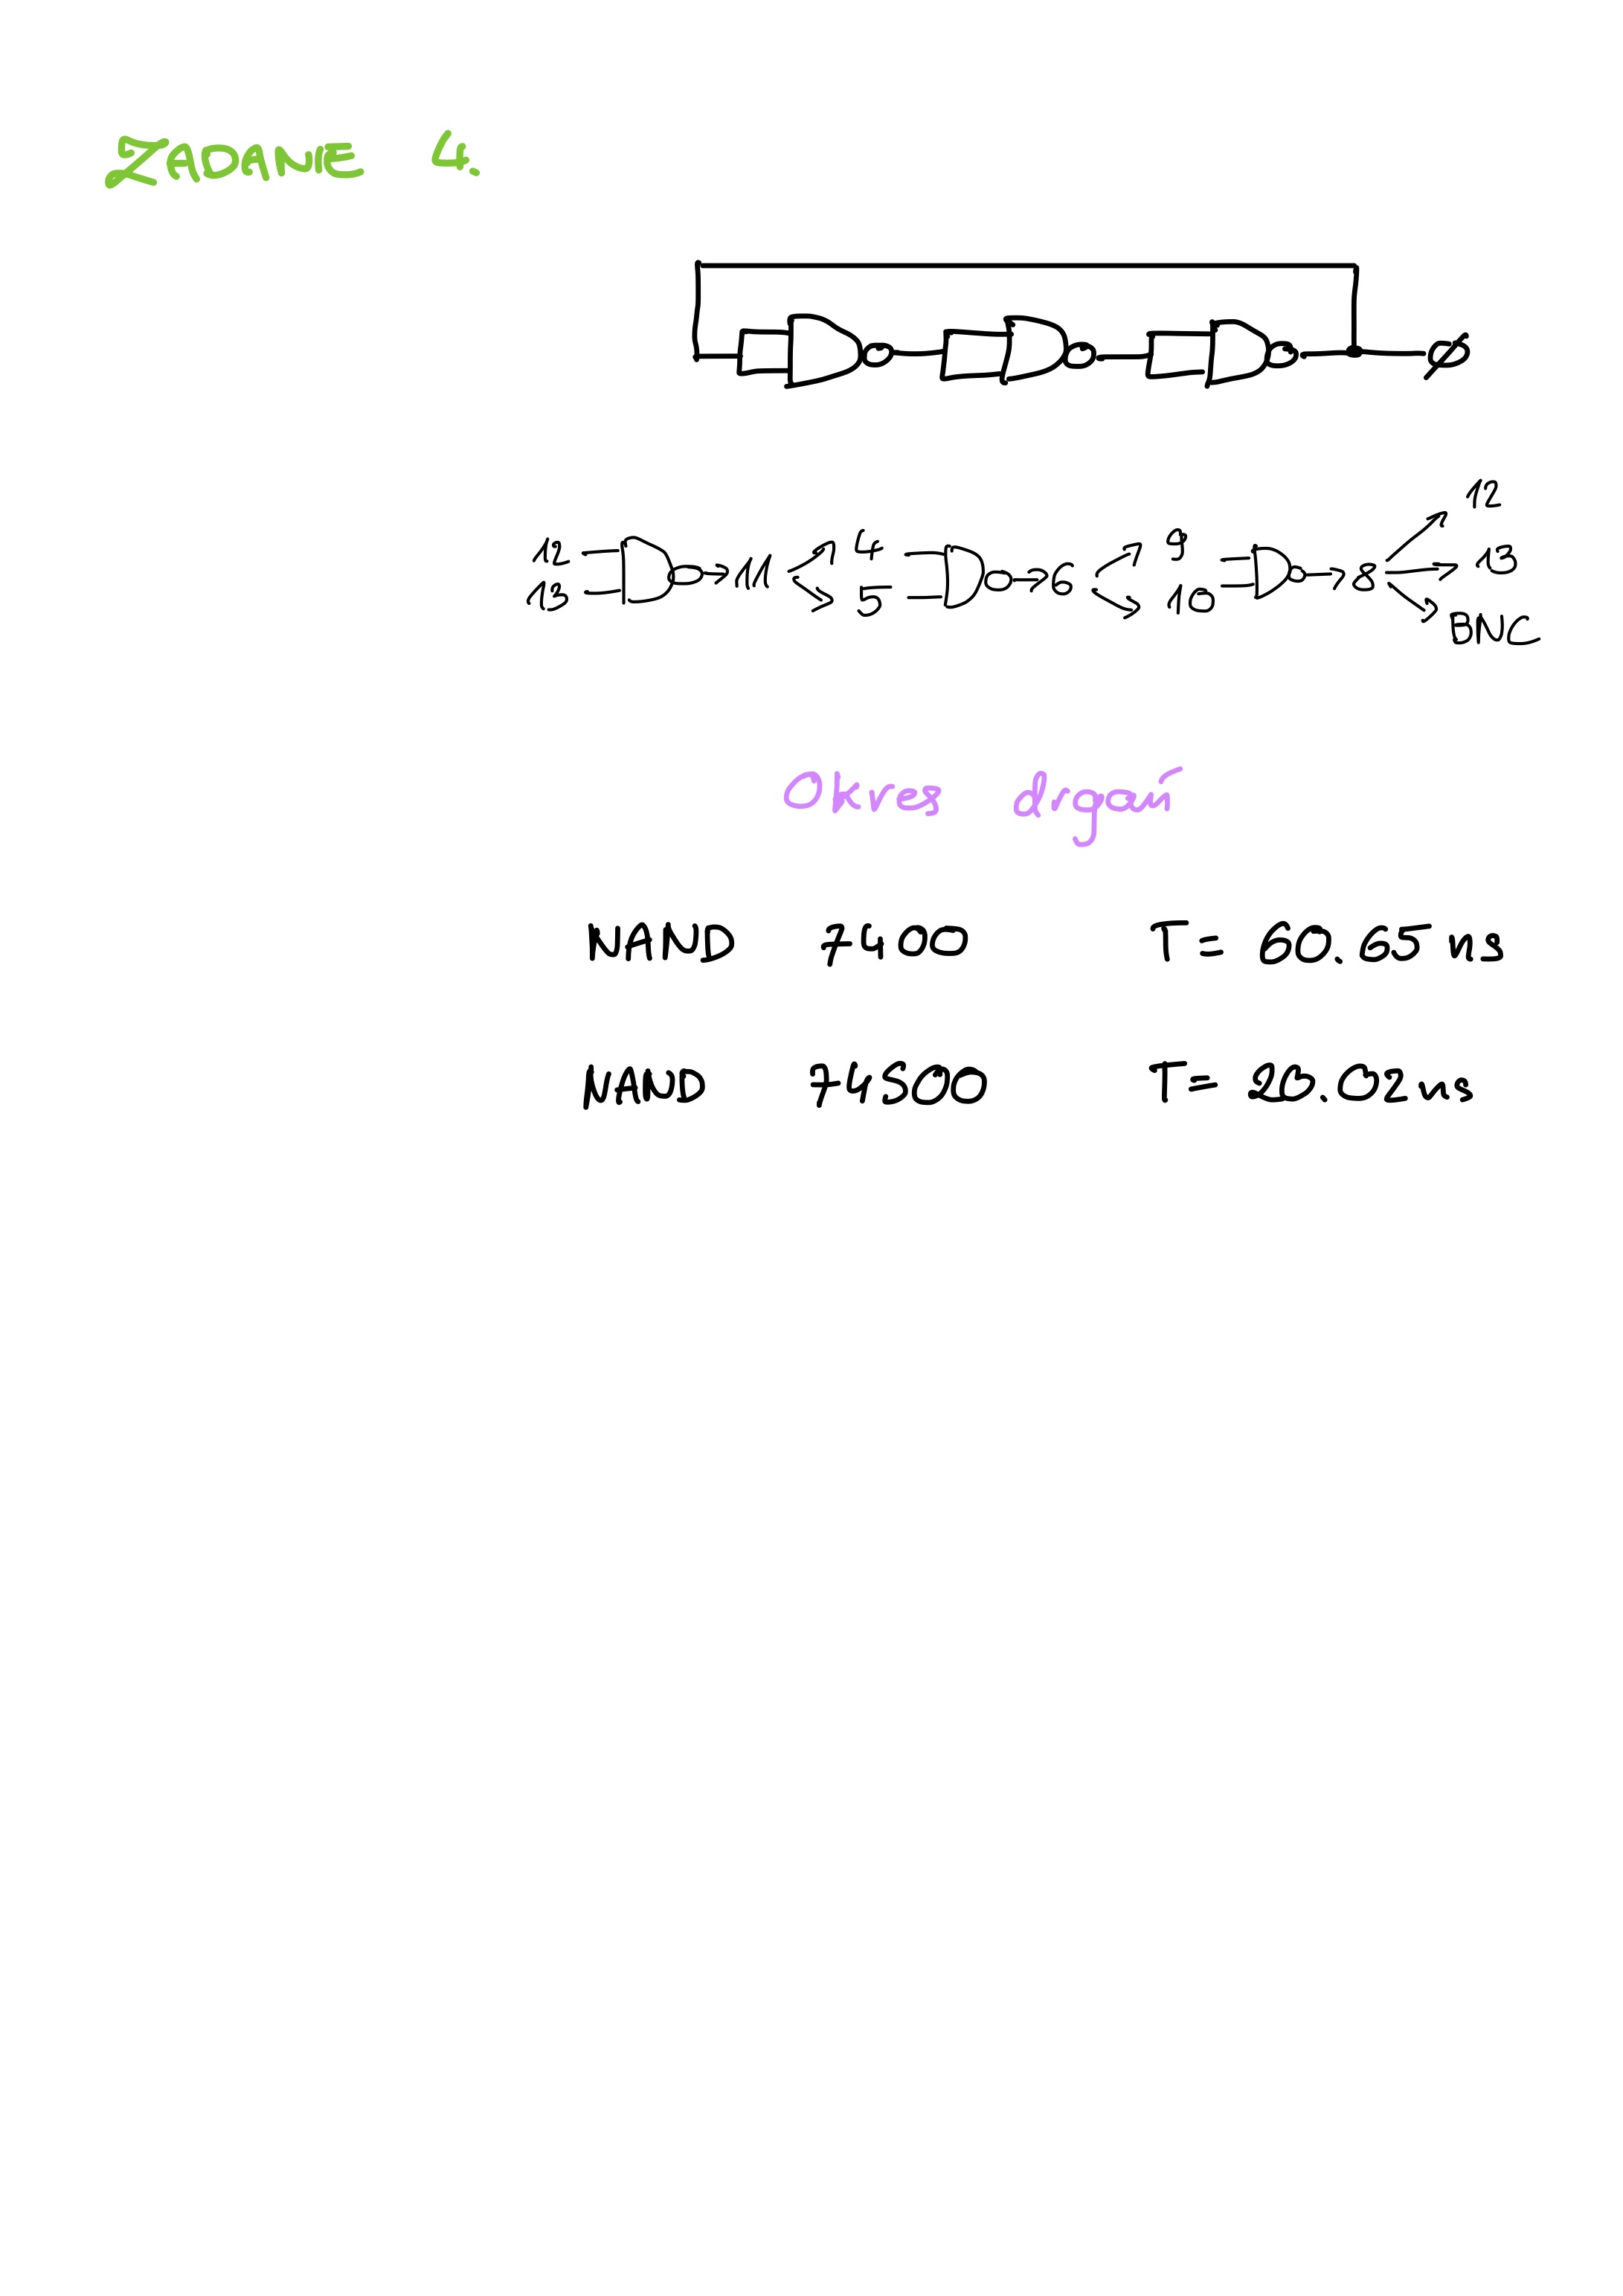 ZADANIE 4.
12 13 11 4 5 6 9 10 8 12 13 BNC
Okres drgań
NAND 7400 T= 60.65 ns
NAND 74S00 T= 20.02 ns